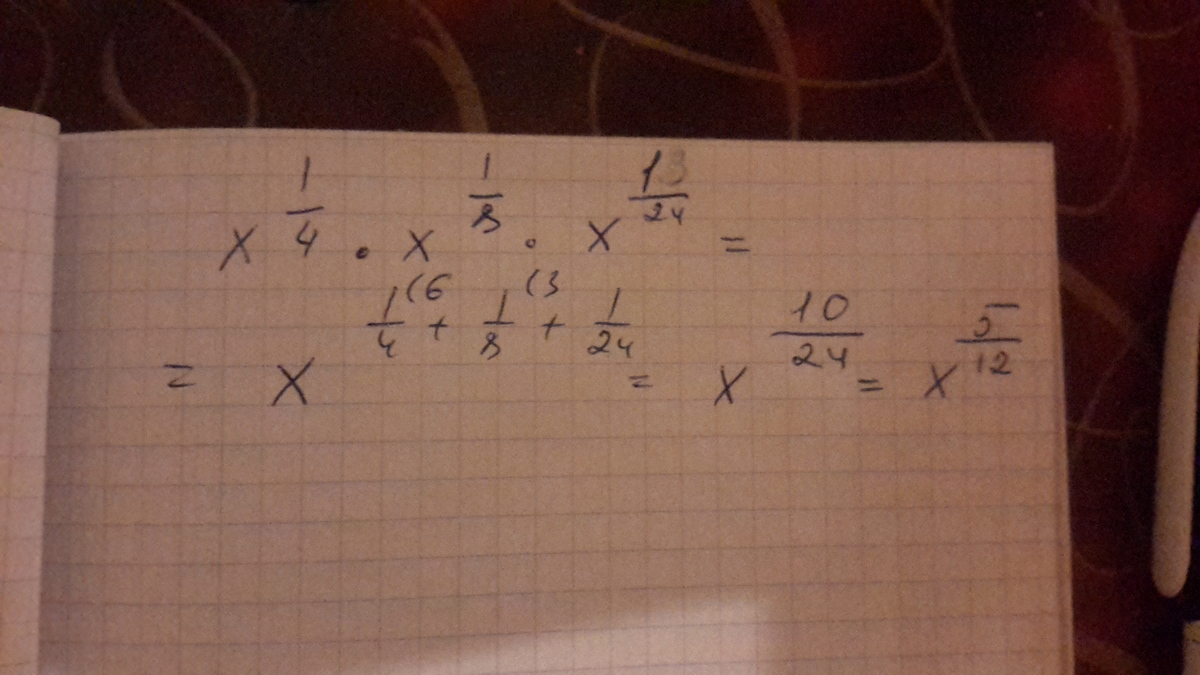 x^{1/4} · x^{1/8} · x^{13/24} =
= x^{1/4(6 + 1/8(3 + 1/24} = x^{10/24} = x^{5/12}